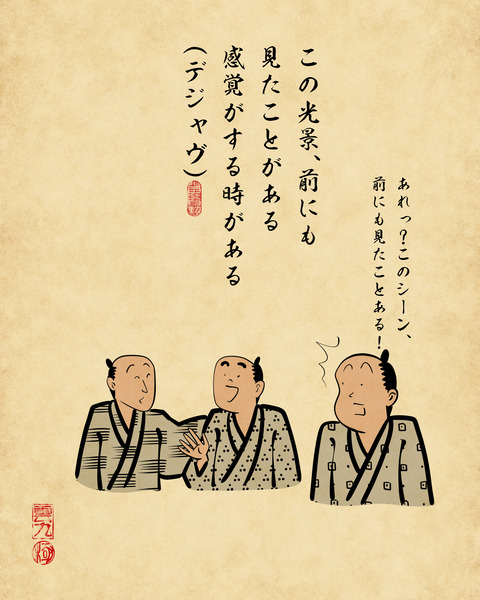 この光景、前にも
見たことがある
感覚がする時がある
(デジャヴ)
あれっ?このシーン、
前にも見たことある!